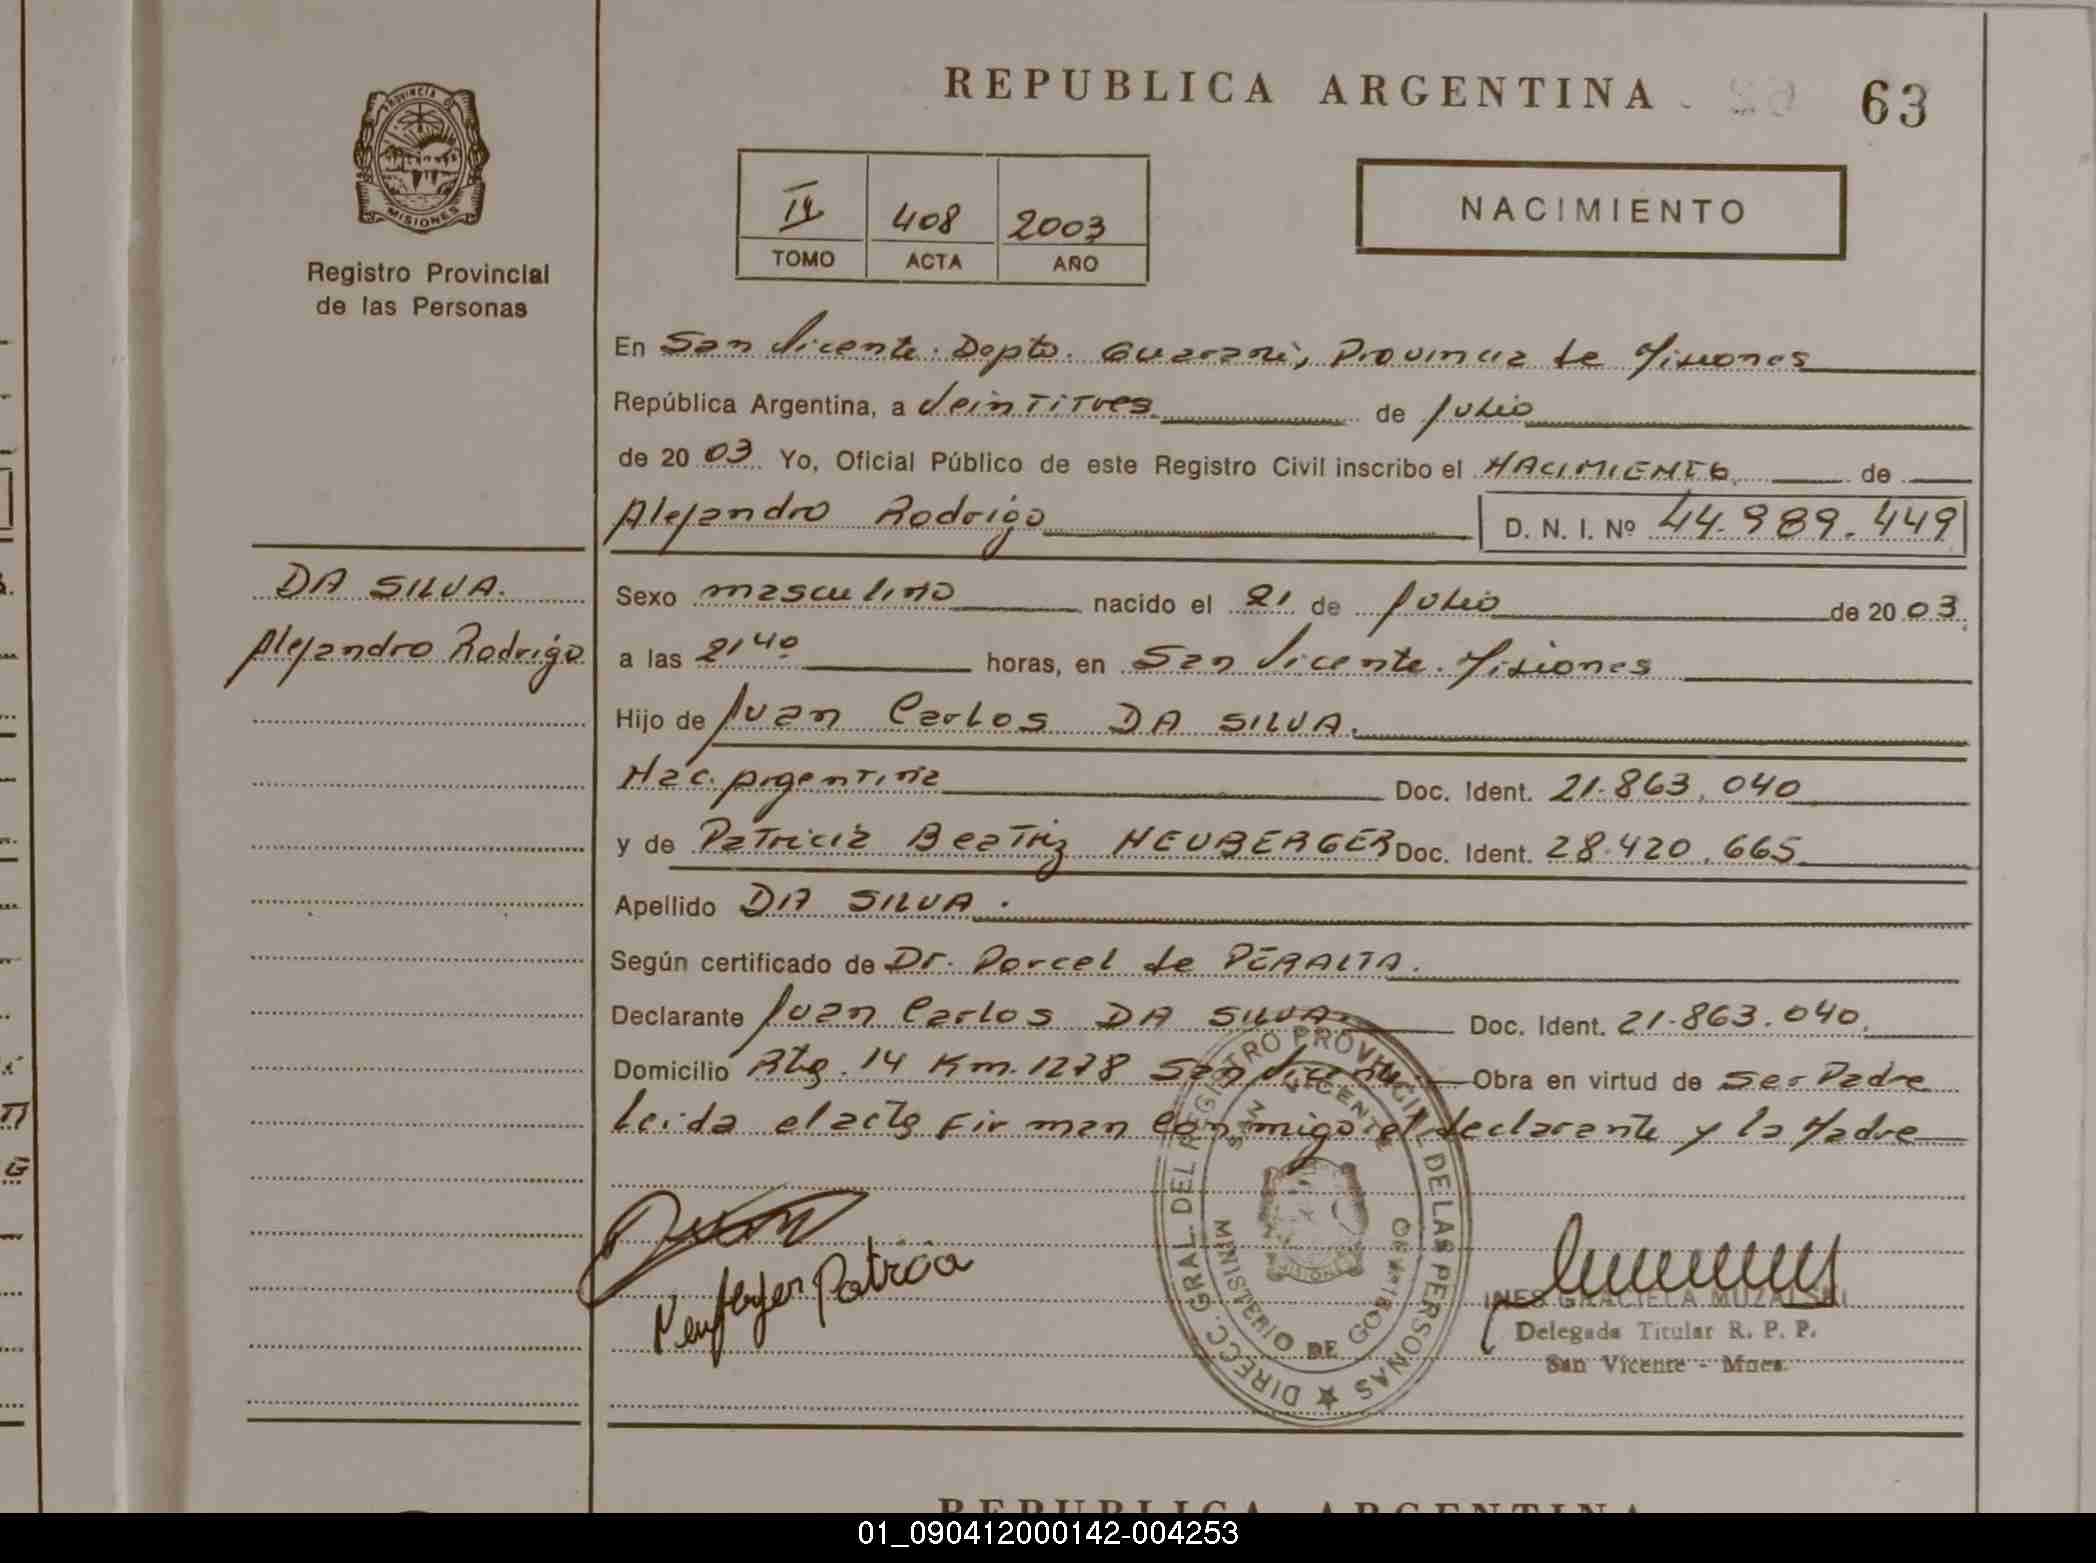 REPUBLICA ARGENTINA
63
PROVINCIA DE
MISIONES
Registro Provincial
de las Personas
408 2003
TOMO ACTA AÑO
NACIMIENTO
En San Vicente. Depto. Guaraní, Provincia de Misiones
República Argentina, a Veintitres de Julio
de 2003. Yo, Oficial Público de este Registro Civil inscribo el NACIMIENTO de
Alejandro Rodrigo D. N. I. Nº 44.989.449
DA SILVA.
Alejandro Rodrigo
Sexo masculino nacido el 21 de Julio de 2003.
a las 21 40 horas, en San Vicente. Misiones
Hijo de Juan Carlos DA SILVA.
Nac. Argentina Doc. Ident. 21.863.040
y de Patricia Beatriz NEUBERGER Doc. Ident. 28.420.665
Apellido DA SILVA.
Según certificado de Dr. Porcel de PERALTA.
Declarante Juan Carlos DA SILVA Doc. Ident. 21.863.040.
Domicilio Rta. 14 Km. 1278 San Vicente Obra en virtud de ser Padre
Leida el acta firman conmigo el declarante y la Madre
DIRECC. GRAL. DEL REGISTRO PROVINCIAL DE LAS PERSONAS
SAN VICENTE
MINISTERIO DE GOBIERNO
MISIONES
Neuberger Patricia
INES GRACIELA MUZALSKI
Delegada Titular R. P. P.
San Vicente - Mnes.
REPUBLICA ARGENTINA
01_090412000142-004253